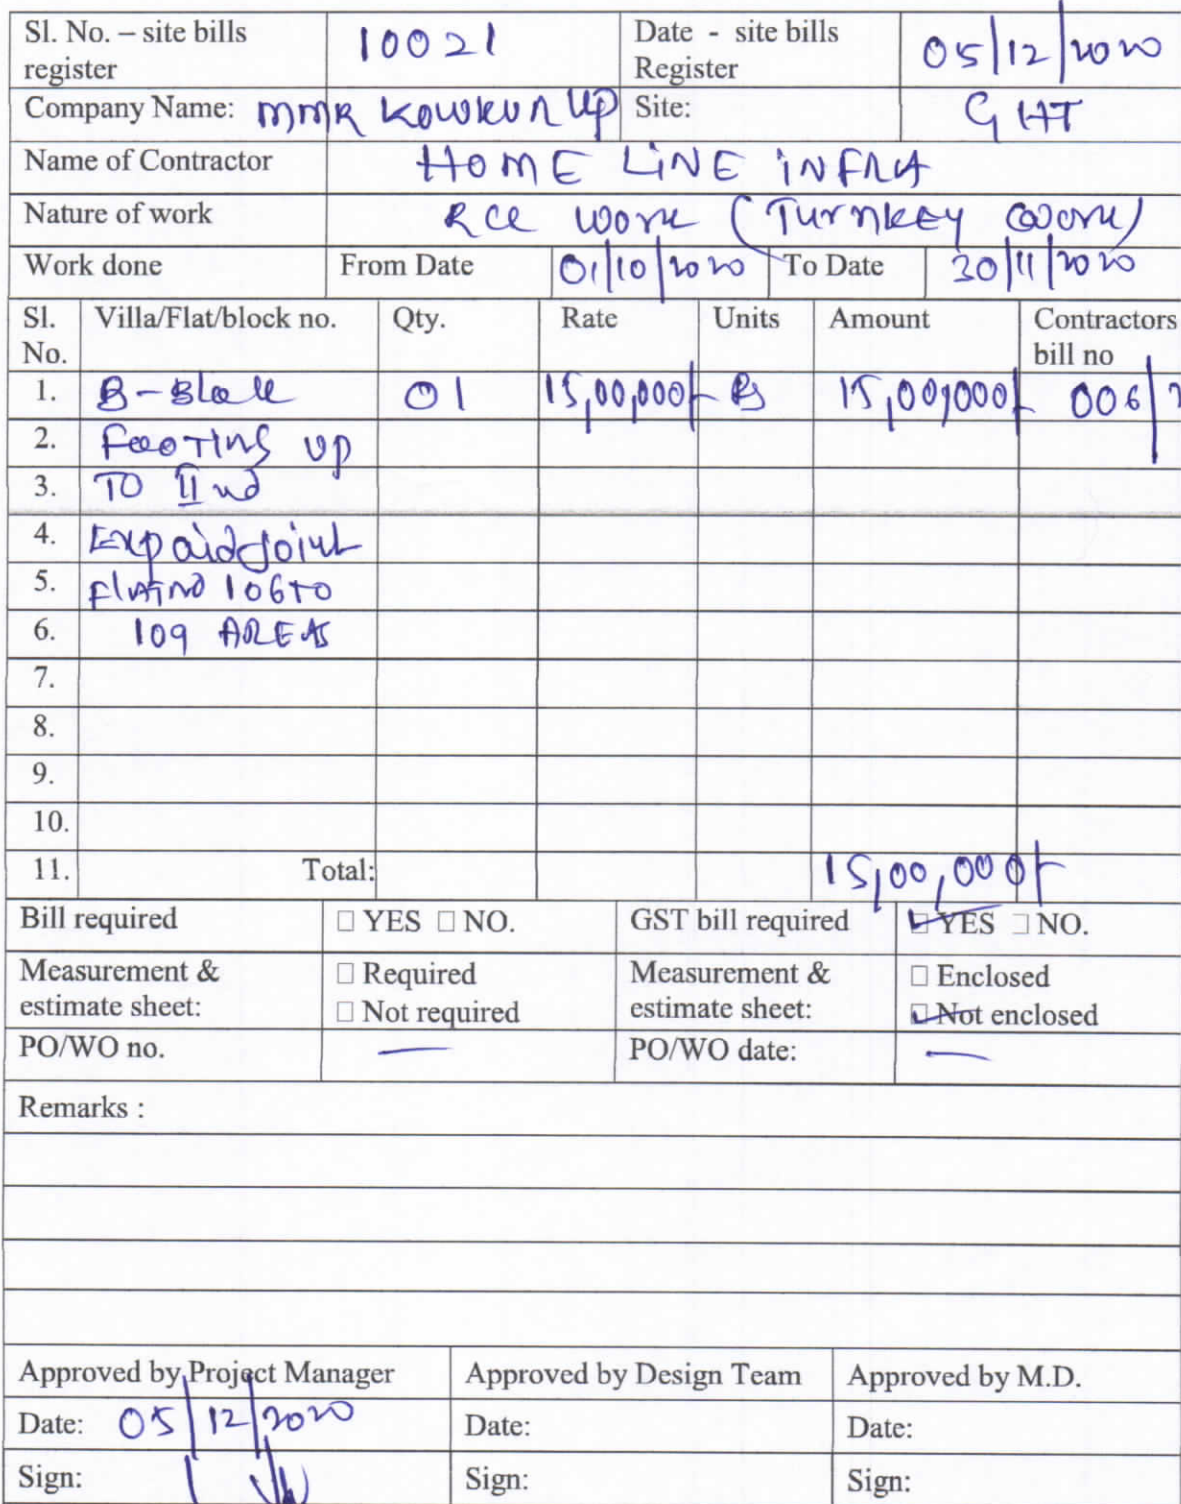 Sl. No. – site bills register 10021 Date - site bills Register 05/12/2020
Company Name: MMR KOWKUR LLP Site: GHT
Name of Contractor HOME LINE INFRA
Nature of work RCC WORK (TURNKEY WORK)
Work done From Date 01/10/2020 To Date 30/11/2020
Sl. No. Villa/Flat/block no. Qty. Rate Units Amount Contractors bill no
1. B-Block 01 15,00,000/- Rs 15,00,000/- 006/
2. FOOTING UP
3. TO IInd
4. Joint
5. 106 TO
6. 109 AREAS
7.
8.
9.
10.
11. Total: 15,00,000/-
Bill required □ YES □ NO. GST bill required □ YES □ NO.
Measurement & estimate sheet: □ Required □ Not required Measurement & estimate sheet: □ Enclosed □ Not enclosed
PO/WO no. — PO/WO date: —
Remarks :
Approved by Project Manager Approved by Design Team Approved by M.D.
Date: 05/12/2020 Date: Date:
Sign: Sign: Sign: